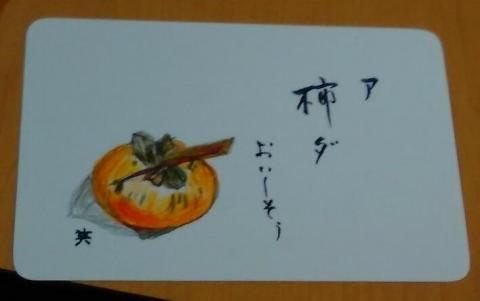 ア
柿ダ
おいしそう
英